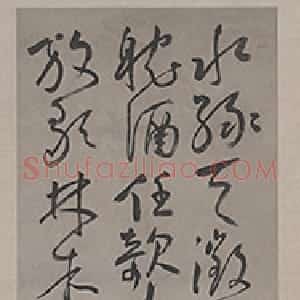 水綠天澂
耽酒任欹
放歌林
Shufaziliao.com